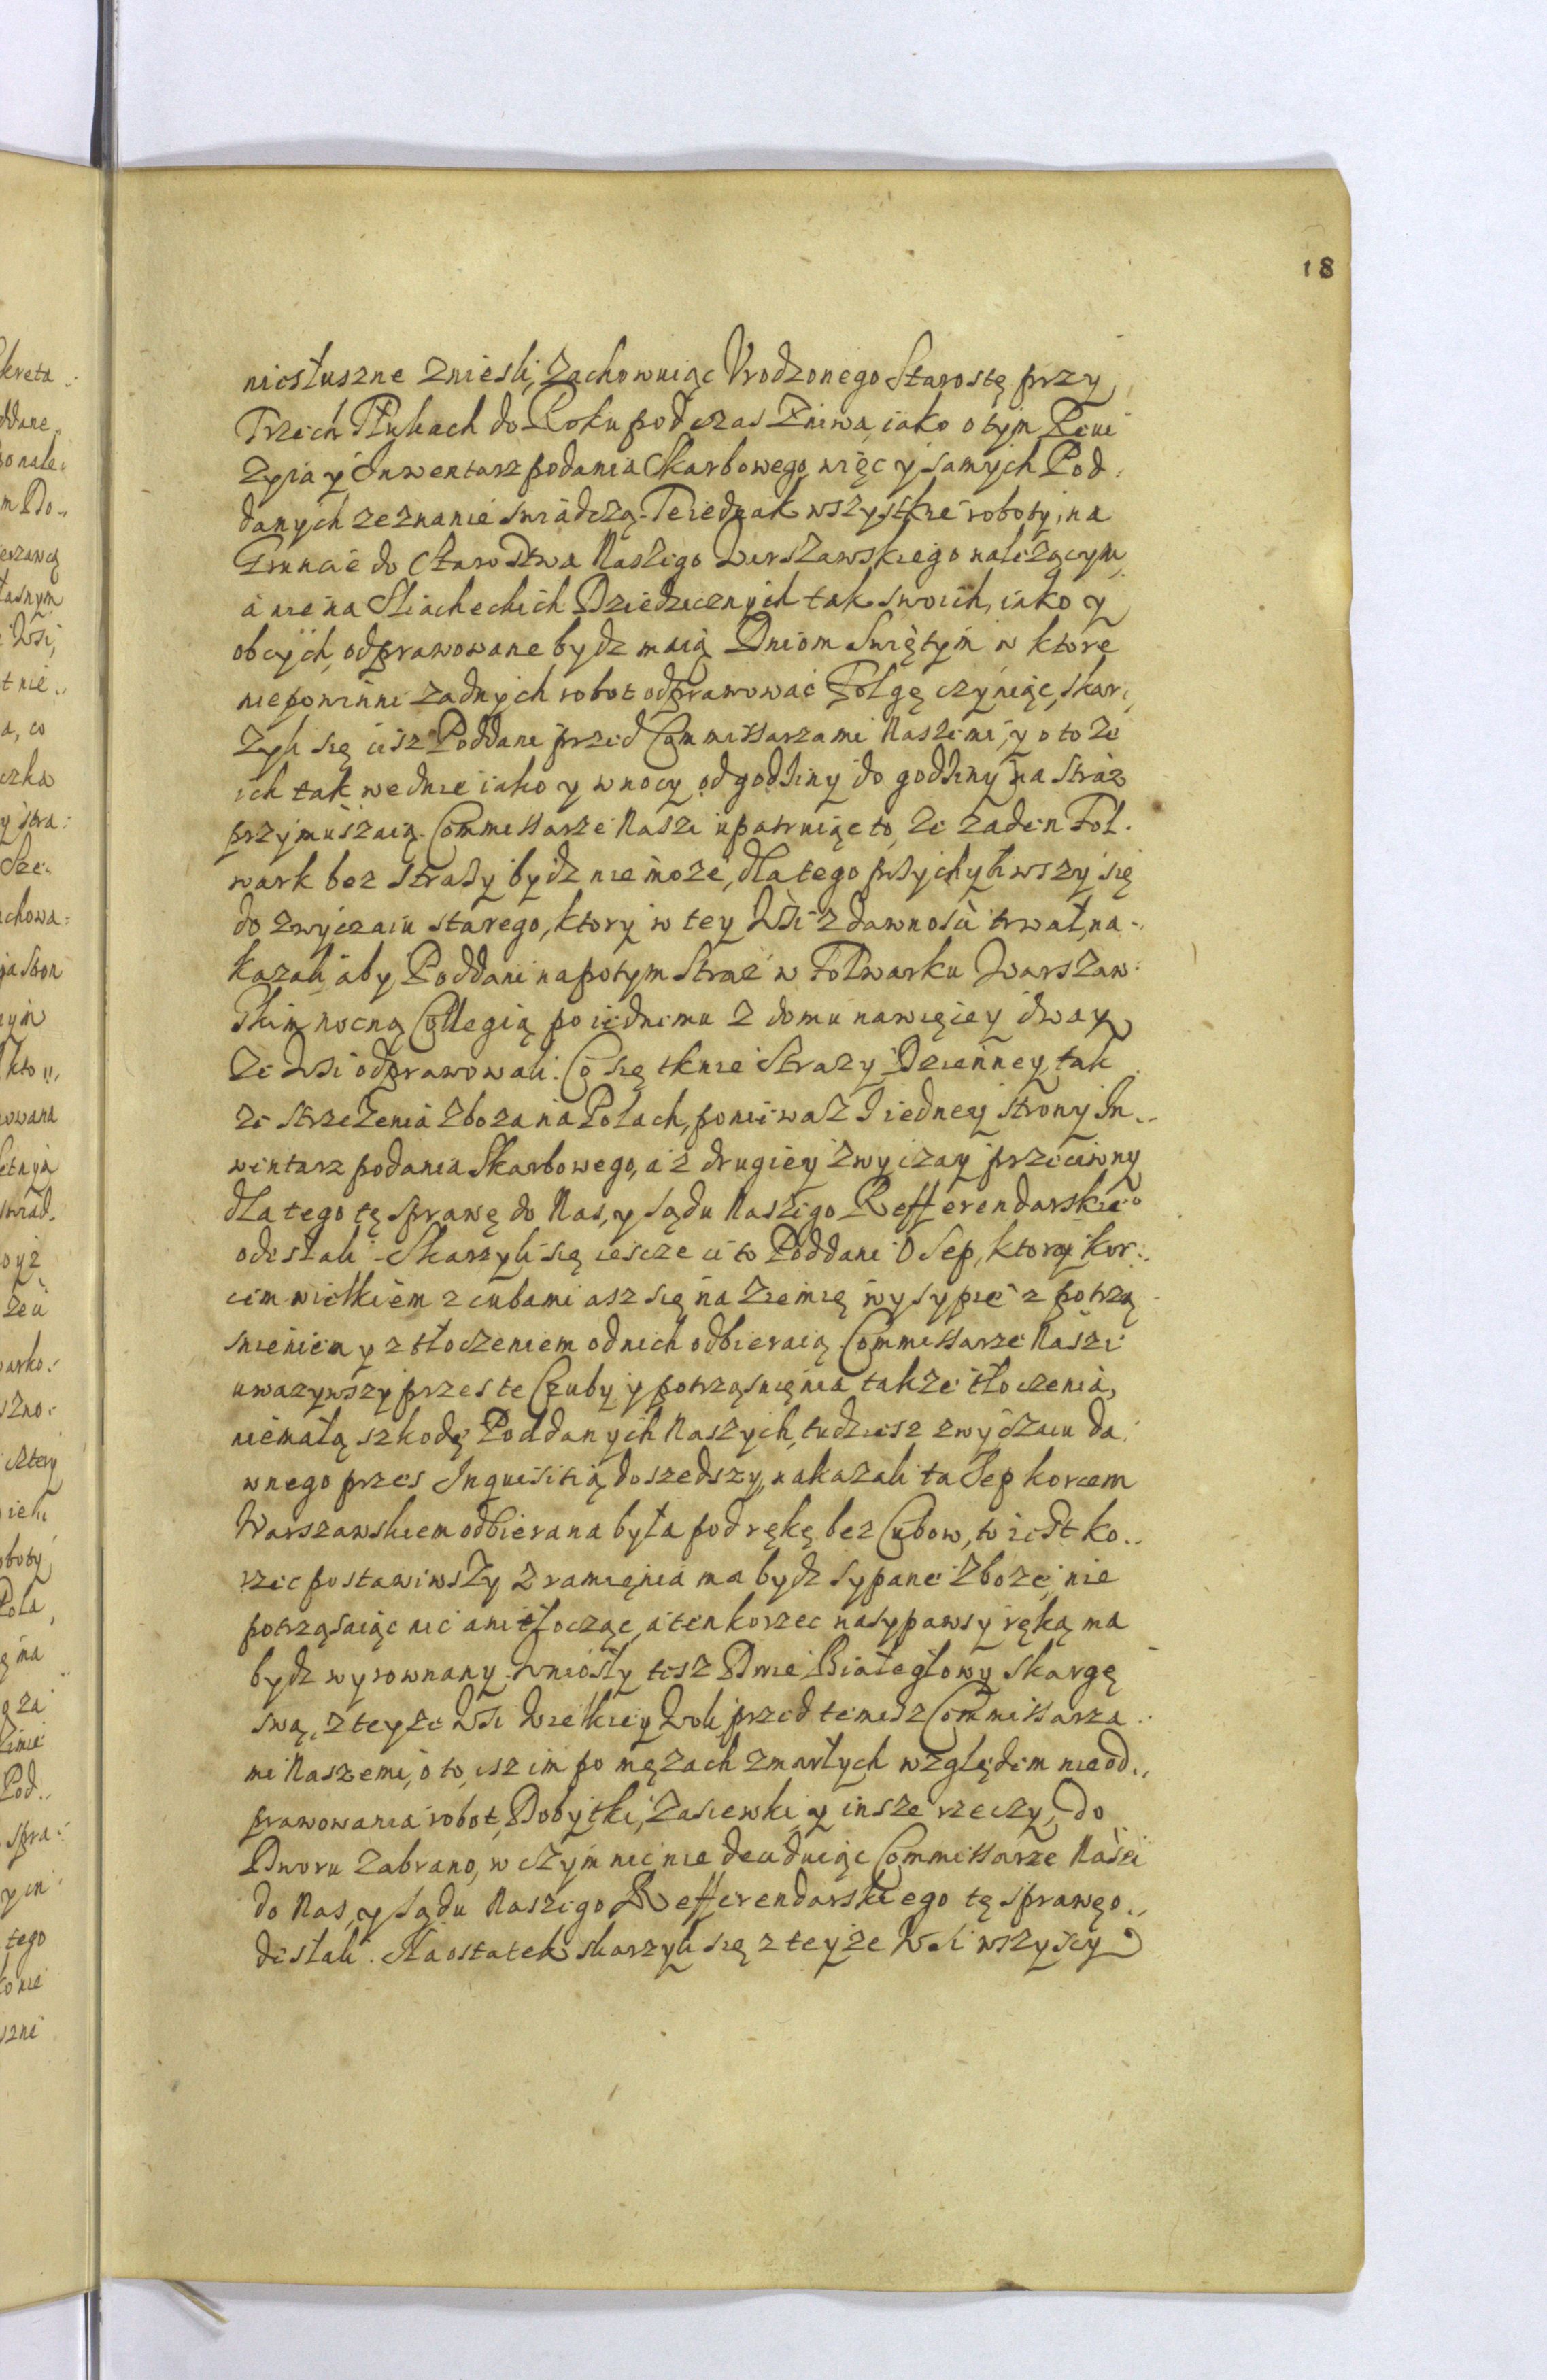 18
niesłuszne znieśli, zachowuiąc Vrodzonego Starostę przy
Trzech Tłukach do Roku podczas Zniwa, iako o tym Rewi
zyia y Inwentarz podania Skarbowego, więc y samych Pod:
danych zeznanie swiadczą. Te iednak wszystkie roboty, na
Gruncie do Starostwa Naszego Warszawskiego należącym,
a nie na Sliacheckich Dziedzicznych tak swoich, iako y
obcych, odprawowane bydz maią Dniom Swiętym w ktore
niepowinni zadnych robot odprawować Folgę czyniąc, skar:
zyli się iesz Poddani przed Commissarzami Naszemi, y o to że
ich tak wednie iako y wnocy od godziny do godziny na straz
przymuszaią. Commissarze Naszi upatruiąc to, że zaden Fol:
wark bez strazy bydz nie może, dla tego przychyliwszy się
do zwyczaiu starego, ktory w tey Wsi z dawności trwał, na:
kazali aby Poddani napotym Straż w Folwarku Warszaw:
skim nocną Collegią po iednemu z domu nawięcey dway
ze Wsi odprawowali. Co się tknie Strazy Dzienney, tak
ze strzeżenia zboza na Polach, ponieważ z iedney strony In:
wentarz podania Skarbowego, a z drugiey zwyczay przeciwny
dla tego tę sprawę do Nas, y Sądu Naszego Refferendarskie°
odesłali. Skarzyli się iescze ci to Poddani o Sep, ktory kor:
cem wielkiem z cubami asz się na ziemię wysypie z potrzą
snieniem y z tłoczeniem od nich odbieraią. Commissarze Naszi
uwazywszy przes te Czuby y potrząsnięnia także tłoczenia,
niemałą szkodę Poddanych Naszych, tudziesz zwyczaiu da:
wnego przes Inquisitią doszedszy, nakazali ta Sep korcem
Warszawskiem odbierana była pod rękę bez Cubow, to iest ko:
rzec postawiwszy z ramięnia ma bydz sypane Zboze, nie
potrząsaiąc nic ani tłocząc, a ten korzec nasypawsy ręką ma
bydz wyrownany. Wniosły tesz Dwie Białegłowy skargę
swą, z teyze Wsi Wielkiey Woli przed temisz Commissarza:
mi Naszemi, o to, isz im po mężach zmarłych względem nieod:
prawowania robot, Dobytki, Zasiewki, y insze rzeczy, do
Dworu zabrano, w czym nic nie decyduiąc Commissarze Naszi
do Nas, y Sądu Naszego Refferendarskiego tę sprawę o:
desłali. Naostatek skarzyli się z teyże Wsi wszyscy